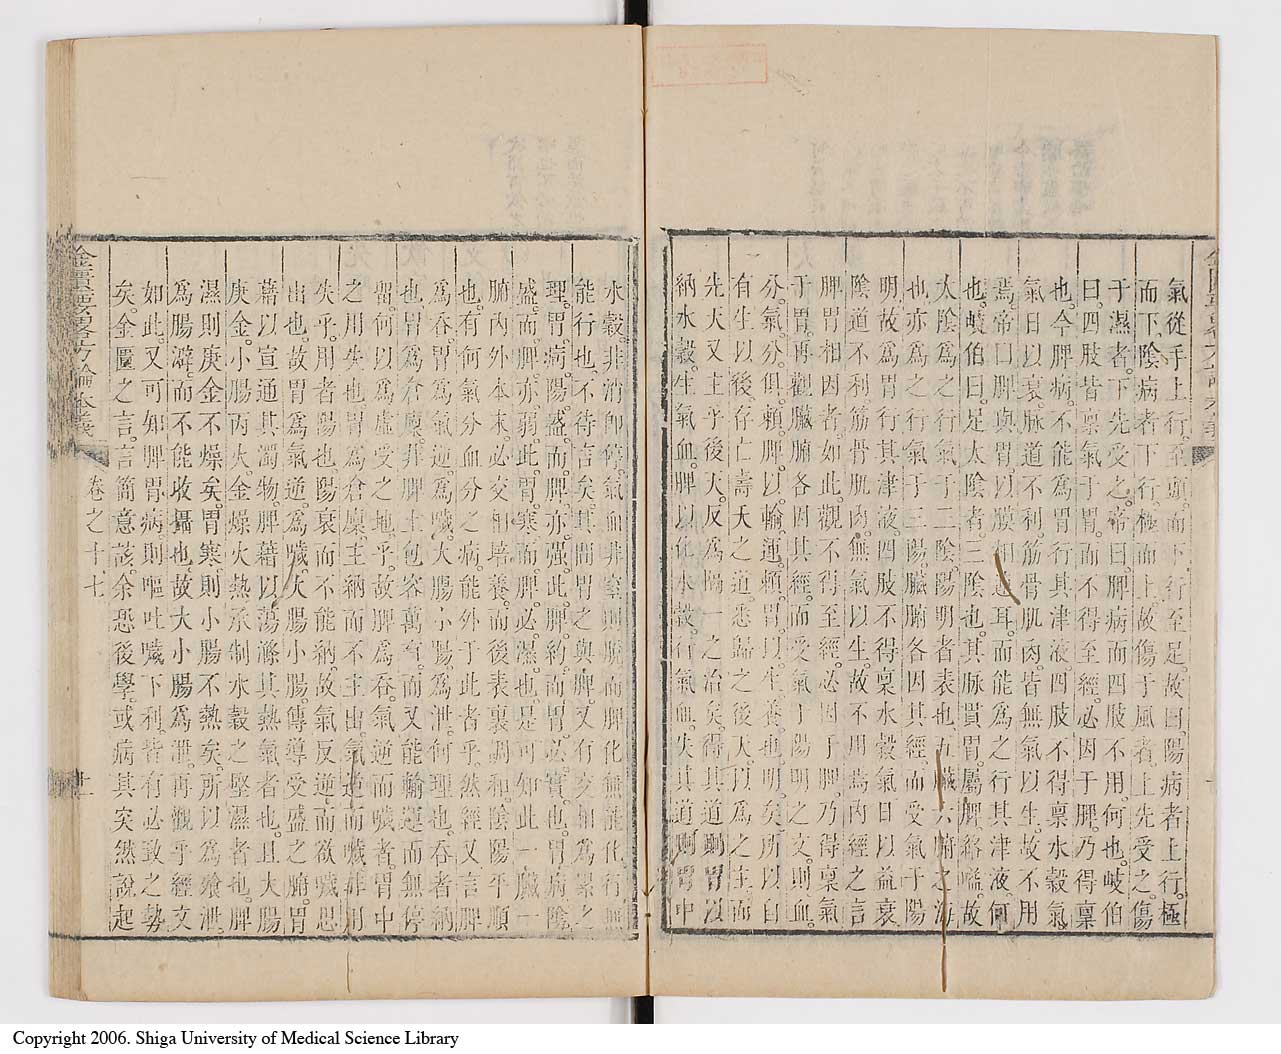 氣從手上行。至頭。而下。行至足。故曰。陽病者。上行。極
而下。陰病者。下行。極而上。故傷于風者。上先受之。傷
于濕者。下先受之。帝曰。脾病而四肢不用。何也。岐伯
曰。四肢皆稟氣于胃。而不得至經。必因于脾。乃得稟
也。今脾病。不能爲胃。行其津液。四肢不得稟水穀氣。
氣日以衰。脉道不利。筋骨肌肉。皆無氣以生。故不用
焉。帝曰。脾與胃。以膜相連耳。而能爲之行其津液何
也。岐伯曰。足太陰者。三陰也。其脉貫胃。屬脾。絡嗌。故
太陰爲之行氣于三陰。陽明者。表也。五臟六腑之海
也。亦爲之行氣于三陽。臟腑各因其經。而受氣于陽
明。故爲胃行其津液。四肢不得稟水穀氣。日以益衰
陰道不利。筋骨肌肉。無氣以生。故不用焉。內經之言
脾胃相因者。如此。觀不得至經。必因于脾。乃得稟氣
于胃。再觀臟腑各因其經。而受氣于陽明之文。則血
分。氣分。俱賴脾以輸運。賴胃以生養也。明矣。所以自
有生以後。存亡壽夭之道。悉歸之後天。以爲之主。而
先天又主乎後天。反爲隔一之治矣。得其道則胃
納水穀。生氣血。脾以化水穀。行氣血。失其道。則胃中
水穀。非消卽停。氣血非室則脫。而脾化無能化。行無
能行也。不待言矣。其間胃之與脾。又有交相爲累之
理。胃病。陽盛。而脾亦强。此脾約。而胃必實也。胃病。陰
盛。而脾亦弱。此胃寒。而脾必濕也。是可知此一臟一
腑。內外本末。必交相培養。而後表裏調和。陰陽平順
也。有何氣分血分之病。能外于此者乎。然經又言脾
爲吞。胃爲氣逆。爲噦。大腸小腸。爲泄。何理也。吞者納
也。胃爲倉廩。非脾土包容萬有。而又能輸運而無停
留。何以爲虛受之地乎。故脾爲吞。氣逆而噦者。胃中
之用失也。胃爲倉廩。主納。而不主出。氣逆而噦。非用
失乎。用者陽也。陽衰而不能納。故氣反逆。而欲噦思
出也。故胃爲氣逆。爲噦。大腸小腸。傳導受盛之腑。胃
藉以宣通其濁物。脾藉以蕩滌其熱氣者也。且大腸
庚金。小腸丙火。金燥火熱。承制水穀之壅濕者也。脾
濕則庚金不燥矣。胃寒則小腸不熱矣。所以爲飧泄。
爲腸澼。而不能收攝也。故大小腸爲泄。再觀乎經文
如此。又可知脾胃病。則嘔吐噦下利。皆有必致之勢
矣。金匱之言。言簡意該。余恐後學。或病其突然說起
金匱要畧方論本義
卷之十七
十一
Copyright 2006. Shiga University of Medical Science Library